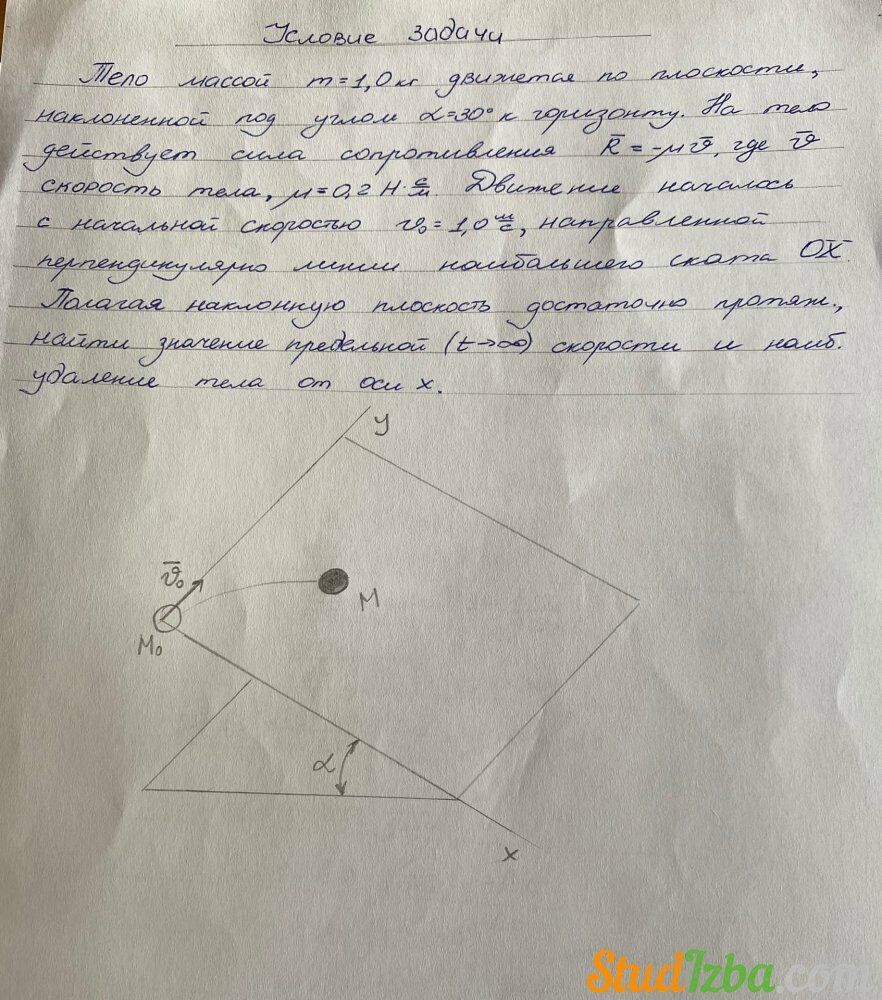 Условие задачи
Тело массой m=1,0 кг движется по плоскости,
наклоненной под углом α=30° к горизонту. На тело
действует сила сопротивления R̄ = -μv̄, где v̄
скорость тела, μ=0,2 Н·с/м. Движение началось
с начальной скоростью v₀=1,0 м/с, направленной
перпендикулярно линии наибольшего ската OX.
Полагая наклонную плоскость достаточно протяж.,
найти значение предельной (t→∞) скорости и наиб.
удаление тела от оси x.
y
v̄₀
M
M₀
α
x
StudIzba.com